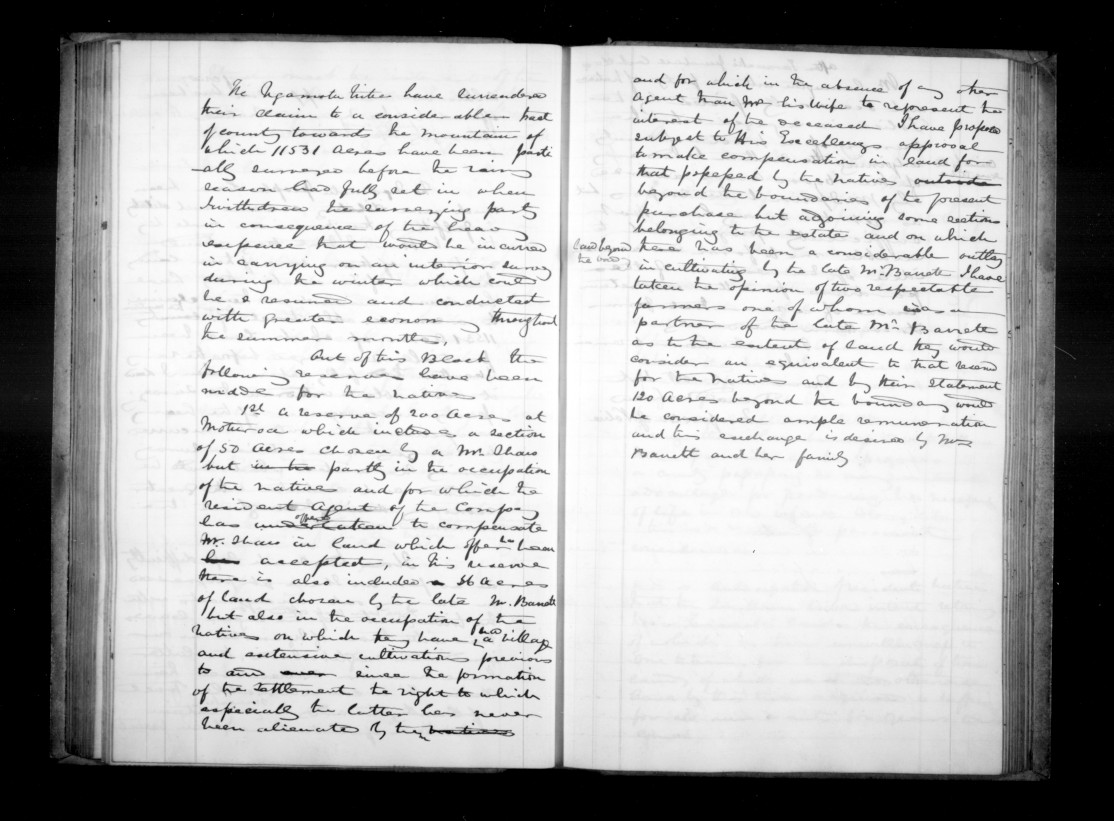 The Ngamotu tribes have surrendered
their claim to a considerable tract
of county towards the mountain of
which 11531 Acres have been parti
-ally surveyed before the rainy
season had fully set in when
I withdrew the surveying party
in consequence of the heavy
expense that would be incurred
in carrying on an interior survey
during the winter which could
be resumed and conducted
with greater economy throughout
the summer months.
Out of this Block the
following reserves have been
made for the natives
1st A reserve of 200 Acres at
Moturoa which includes a section
of 50 Acres chosen by a Mr. Shaw
but in the partly in the occupation
of the natives and for which the
resident Agent of the Company
has undertaken offered to compensate
Mr. Shaw in land which offer has been
has accepted, in this reserve
there is also included a 36 Acres
of land chosen by the late Mr. Barrett
but also in the occupation of the
natives on which they have had a village
and extensive cultivations previous
to and even since the formation
of the settlement the right to which
especially the latter has never
been alienated by them natives
and for which in the absence of any other
Agent than Mrs his wife to represent the
interest of the deceased I have proposed
subject to His Excellency's approval
to make compensation in land for
that possessed by the natives outside
beyond the boundaries of the present
purchase but adjoining some sections
belonging to the estate and on which
land beyond
the
there has been a considerable outlay
in cultivating by the late Mr. Barrett I have
taken the opinion of two respectable
farmers one of whom is a
partner of the late Mr. Barrett
as to the extent of land they would
consider an equivalent to that reserved
for the natives and by their statement
120 Acres beyond the boundary would
be considered ample remuneration
and this exchange is desired by Mrs
Barrett and her family